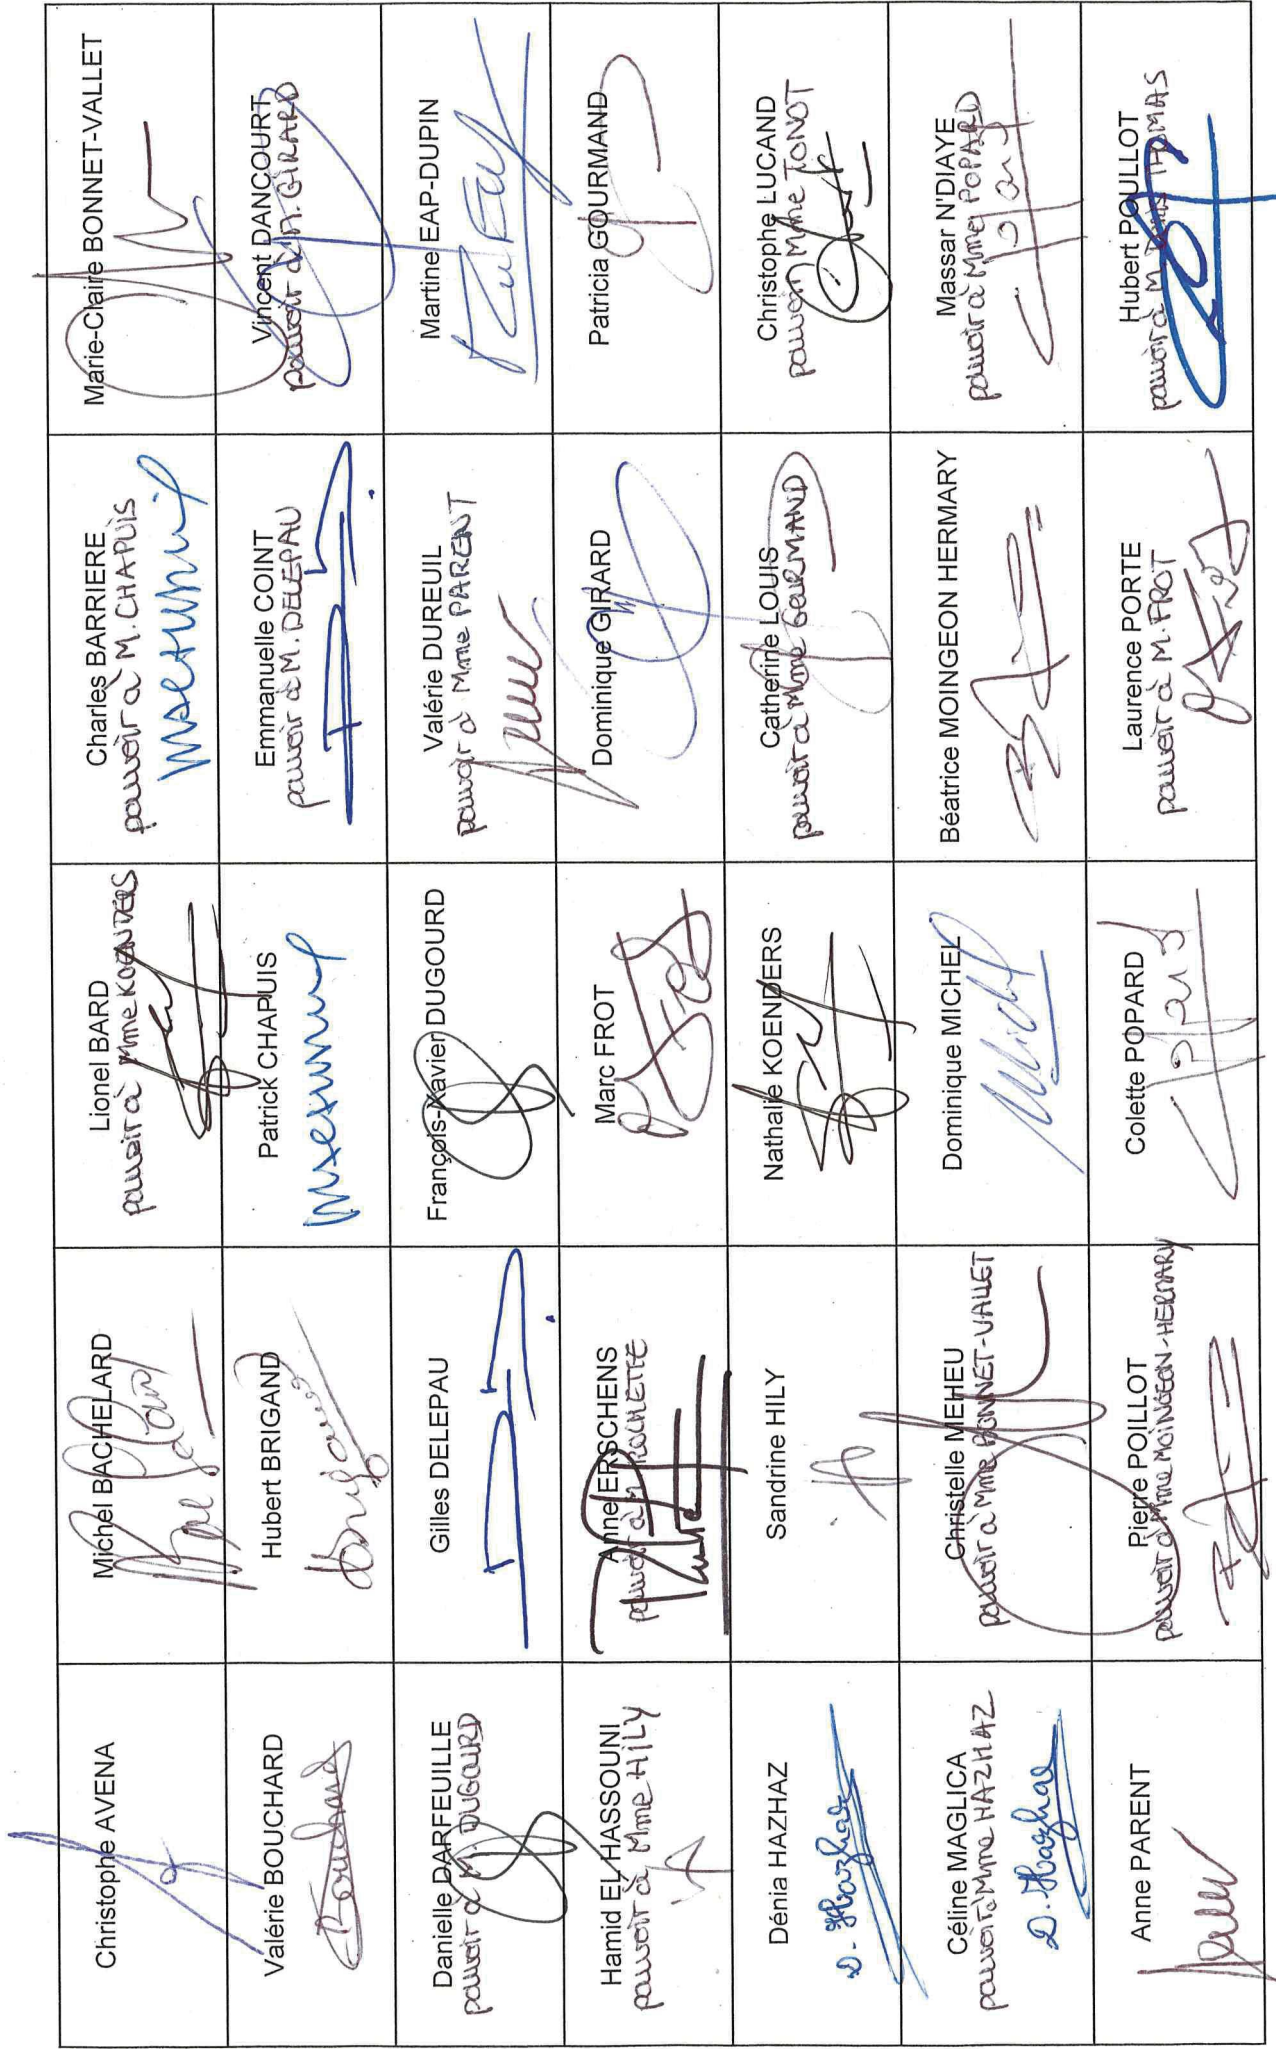 Christophe AVENA
Michel BACHELARD
Lionel BARD
pouvoir à Mme KOENDERS
Charles BARRIERE
pouvoir à M. CHAPUIS
Marie-Claire BONNET-VALLET
Valérie BOUCHARD
Bouchard
Hubert BRIGAND
Patrick CHAPUIS
Emmanuelle COINT
pouvoir à M. DELEPAU
Vincent DANCOURT
pouvoir à M. GIRARD
Danielle DARFEUILLE
pouvoir à M. DUGOURD
Gilles DELEPAU
François-Xavier DUGOURD
Valérie DUREUIL
pouvoir à Mme PARENT
Martine EAP-DUPIN
Hamid EL HASSOUNI
pouvoir à Mme HILY
Anne ERSCHENS
pouvoir à M.
Marc FROT
Dominique GIRARD
Patricia GOURMAND
Dénia HAZHAZ
D. Hazhaz
Sandrine HILY
Nathalie KOENDERS
Catherine LOUIS
pouvoir à Mme GOURMAND
Christophe LUCAND
pouvoir Mme TONOT
Céline MAGLICA
pouvoir à Mme HAZHAZ
D. Hazhaz
Christelle MEHEU
pouvoir à Mme BONNET-VALLET
Dominique MICHEL
Michel
Béatrice MOINGEON HERMARY
Massar N'DIAYE
pouvoir à Mme POPARD
Anne PARENT
Pierre POILLOT
pouvoir à Mme MOINGEON-HERMARY
Colette POPARD
Laurence PORTE
pouvoir à M. FROT
Hubert POULLOT
pouvoir à M. THOMAS